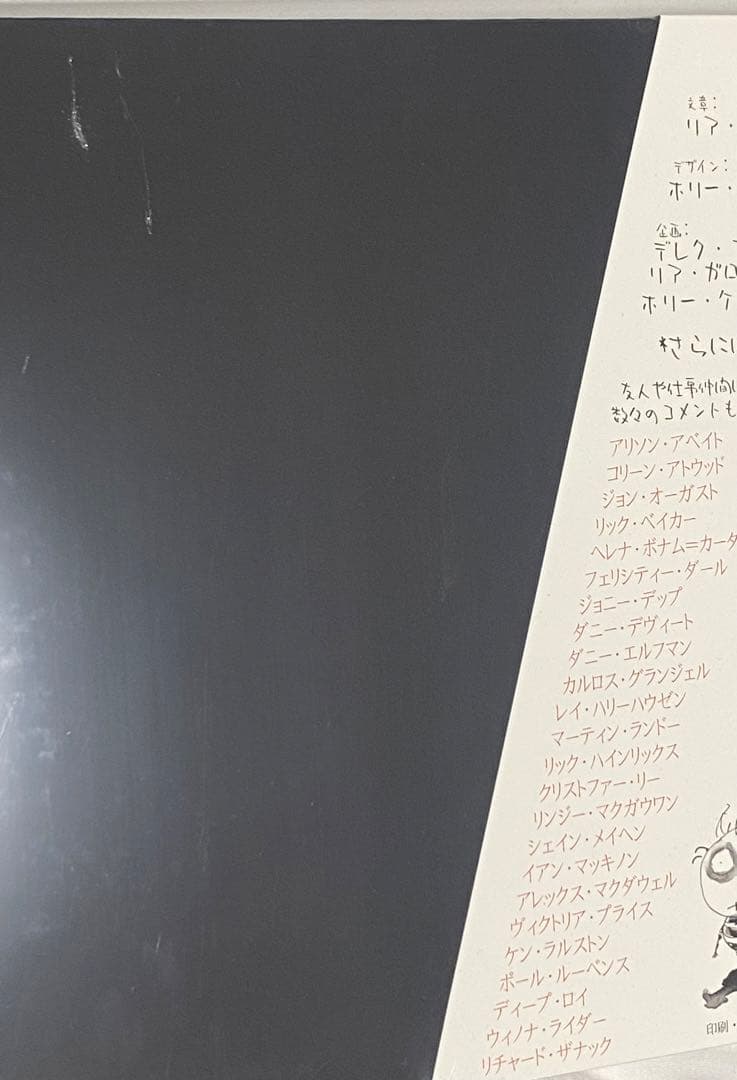 文章:
リア・
デザイン:
ホリー・
企画:
デレク・
リア・ガロ
ホリー・ケ
さらに
友人や仕事仲間
数々のコメントも
アリソン・アベイト
コリーン・アトウッド
ジョン・オーガスト
リック・ベイカー
ヘレナ・ボナム=カータ
フェリシティー・ダール
ジョニー・デップ
ダニー・デヴィート
ダニー・エルフマン
カルロス・グランジェル
レイ・ハリーハウゼン
マーティン・ランドー
リック・ハインリックス
クリストファー・リー
リンジー・マクガウワン
シェイン・メイヘン
イアン・マッキノン
アレックス・マクダウェル
ヴィクトリア・プライス
ケン・ラルストン
ポール・ルーベンス
ディープ・ロイ
ウィノナ・ライダー
リチャード・ザナック
印刷・